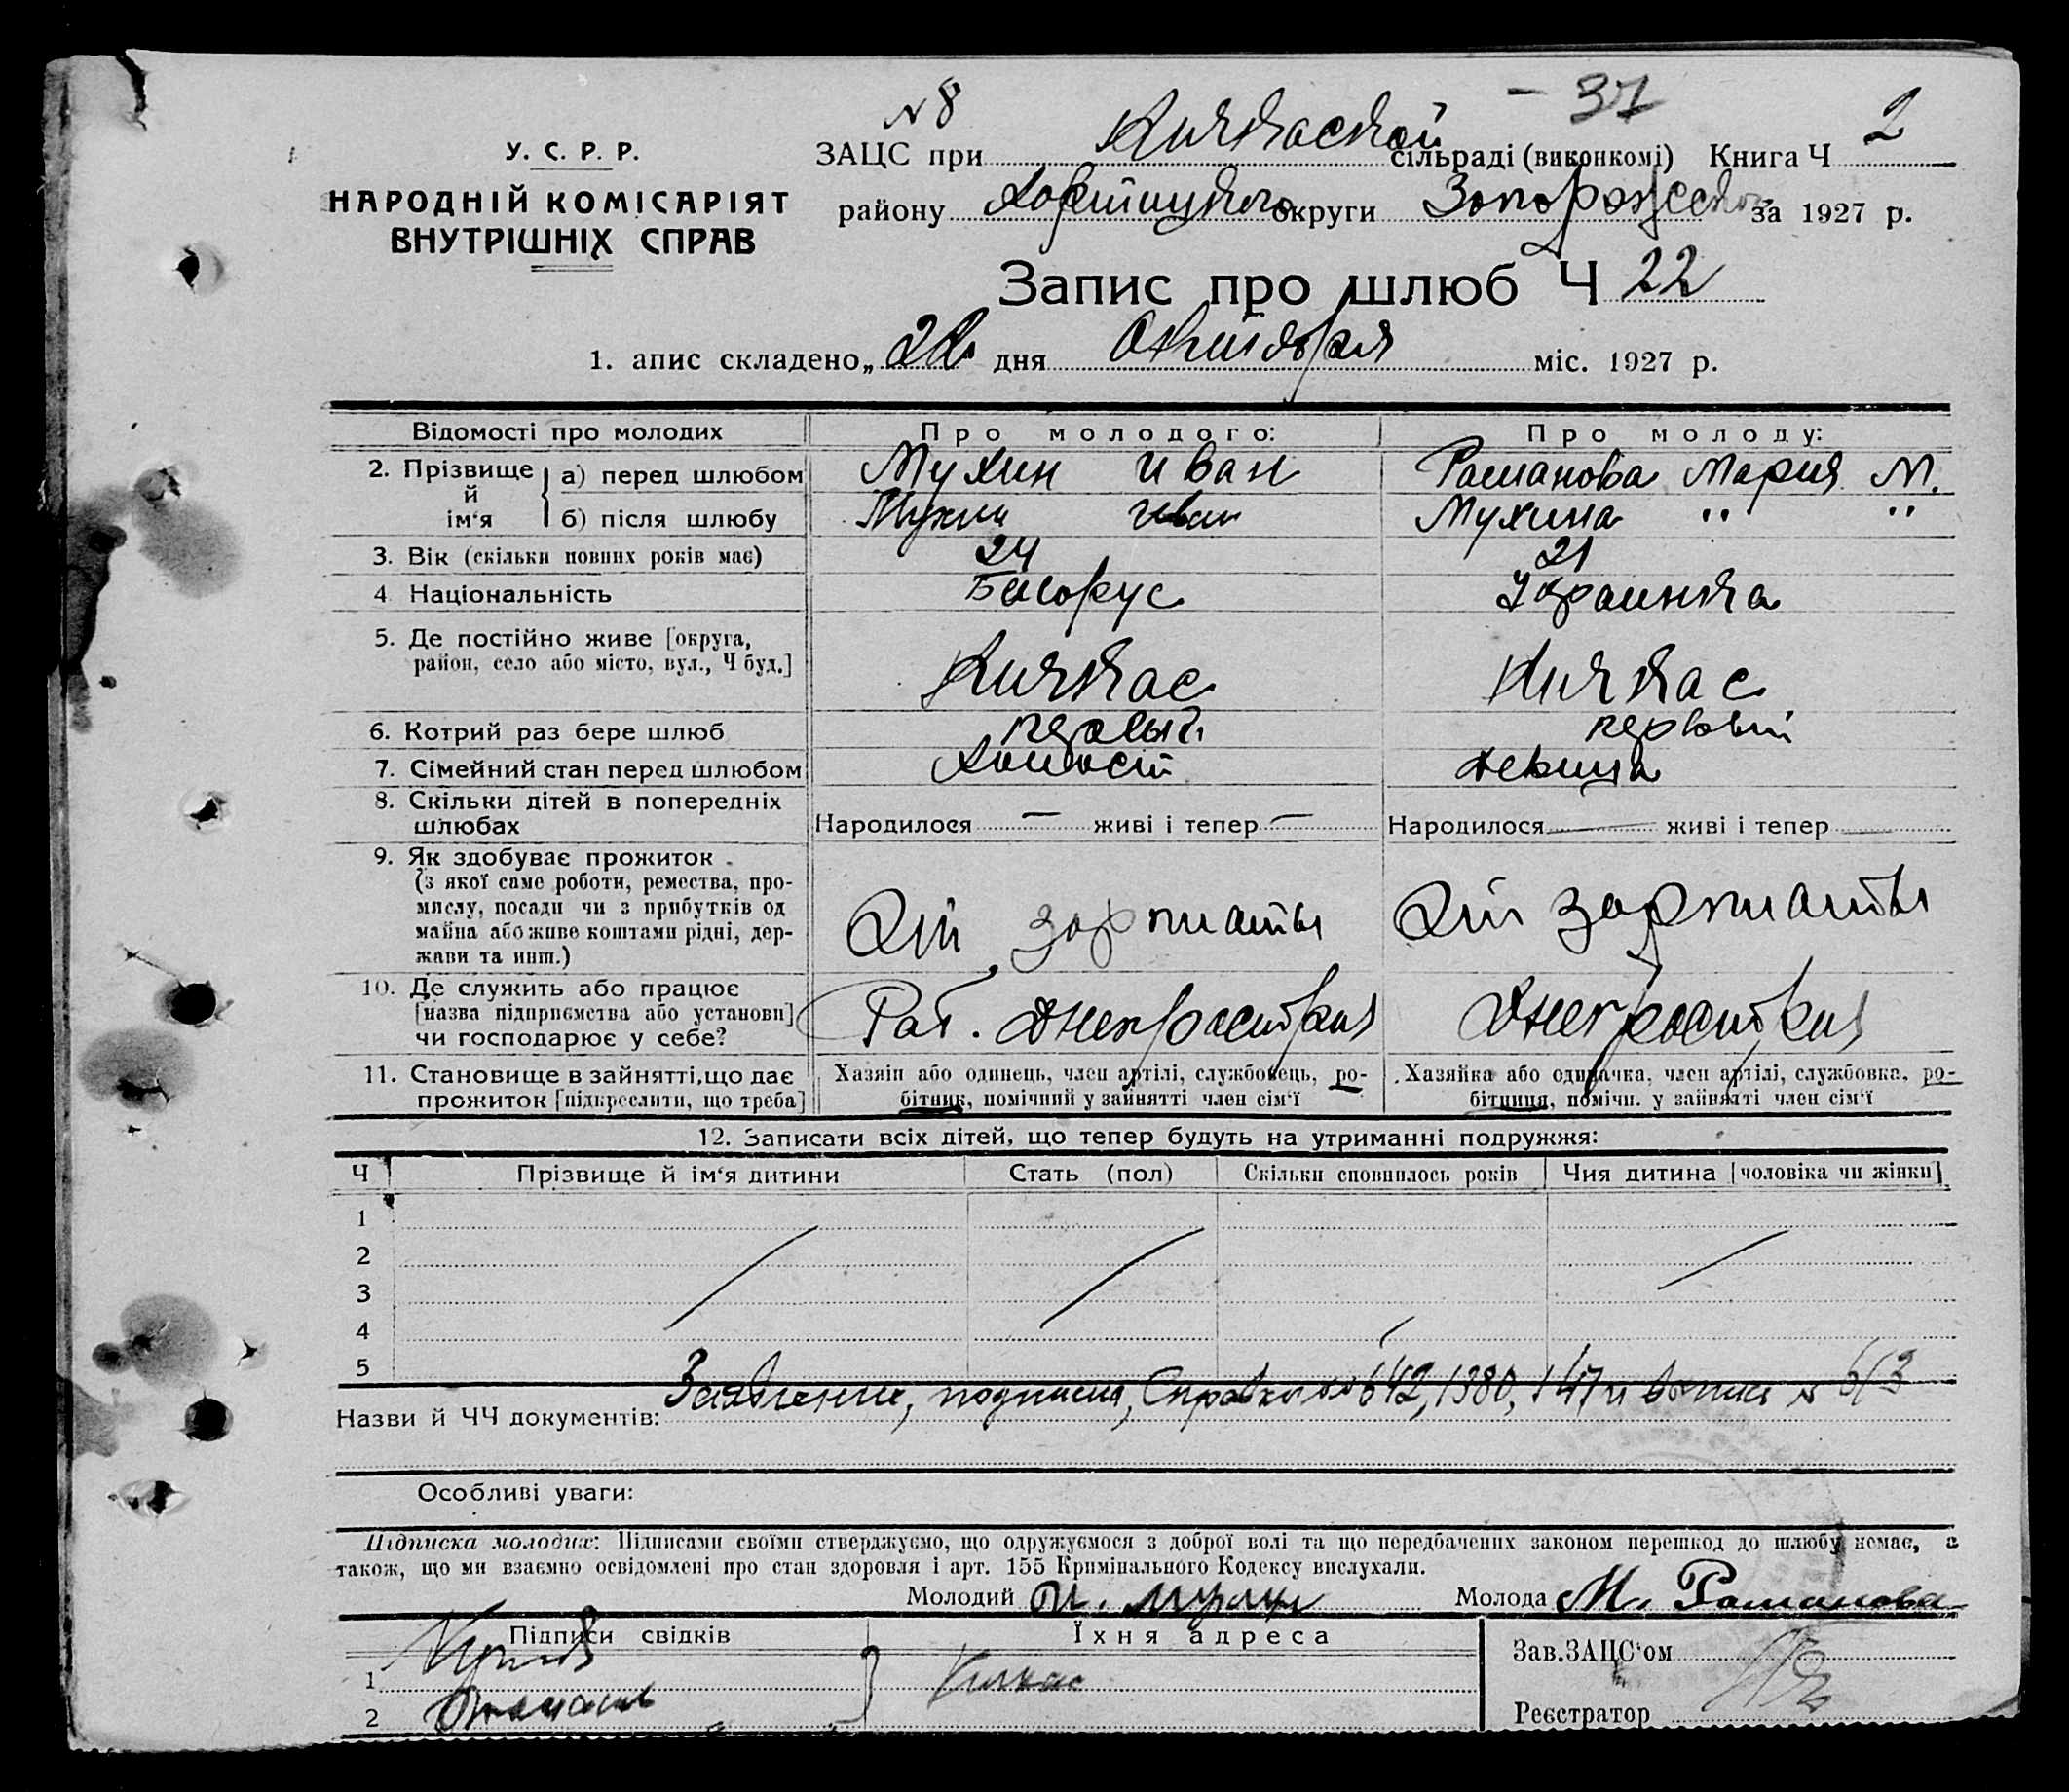 № 8
- 37
У. С. Р. Р.
НАРОДНІЙ КОМІСАРІЯТ
ВНУТРІШНІХ СПРАВ
ЗАЦС при Кичкаской сільраді (виконкомі) Книга Ч 2
району Хортицкого округи Запорожской за 1927 р.
Запис про шлюб Ч 22
1. апис складено „ 22 дня Октября міс. 1927 р.
Відомості про молодих Про молодого: Про молоду:
2. Прізвище й ім‘я
а) перед шлюбом Мухин Иван Романова Мария М.
б) після шлюбу Мухин Иван Мухина " "
3. Вік (скільки повних років має) 24 21
4 Національність Белорус Украинка
5. Де постійно живе [округа,
район, село або місто, вул., Ч буд.] Кичкас Кичкас
6. Котрий раз бере шлюб первый первый
7. Сімейний стан перед шлюбом Холост девица
8. Скільки дітей в попередніх
шлюбах Народилося — живі і тепер — Народилося — живі і тепер —
9. Як здобуває прожиток
(з якої саме роботи, ремества, про-
мислу, посади чи з прибутків од
майна або живе коштами рідні, дер-
жави та инш.) зарплаты зарплаты
10. Де служить або працює
[назва підприємства або установи]
чи господарює у себе? Раб. Днепростроя Днепростроя
11. Становище в зайнятті, що дає
прожиток [підкреслити, що треба]
Хазяїн або одинець, член артілі, службовець, ро-
бітник, помічний у зайнятті член сім‘ї
Хазяйка або одиначка, член артілі, службовка, ро-
бітниця, помічн. у зайнятті член сім‘ї
12. Записати всіх дітей, що тепер будуть на утриманні подружжя:
Ч Прізвище й ім‘я дитини Стать (пол) Скільки сповнилось років Чия дитина [чоловіка чи жінки]
1
2
3
4
5
Назви й ЧЧ документів: Заявление, подписка, Справки №№ 642, 1380, 147 и № 613
Особливі уваги:
Підписка молодих: Підписами своїми стверджуємо, що одружуємося з доброї волі та що передбачених законом перешкод до шлюбу немає, а
також, що ми взаємно освідомлені про стан здоровля і арт. 155 Кримінального Кодексу вислухали.
Молодий И. Мухин Молода М. Романова
Підписи свідків Їхня адреса
1
2
Кичкас
Зав. ЗАЦС‘ом
Реєстратор